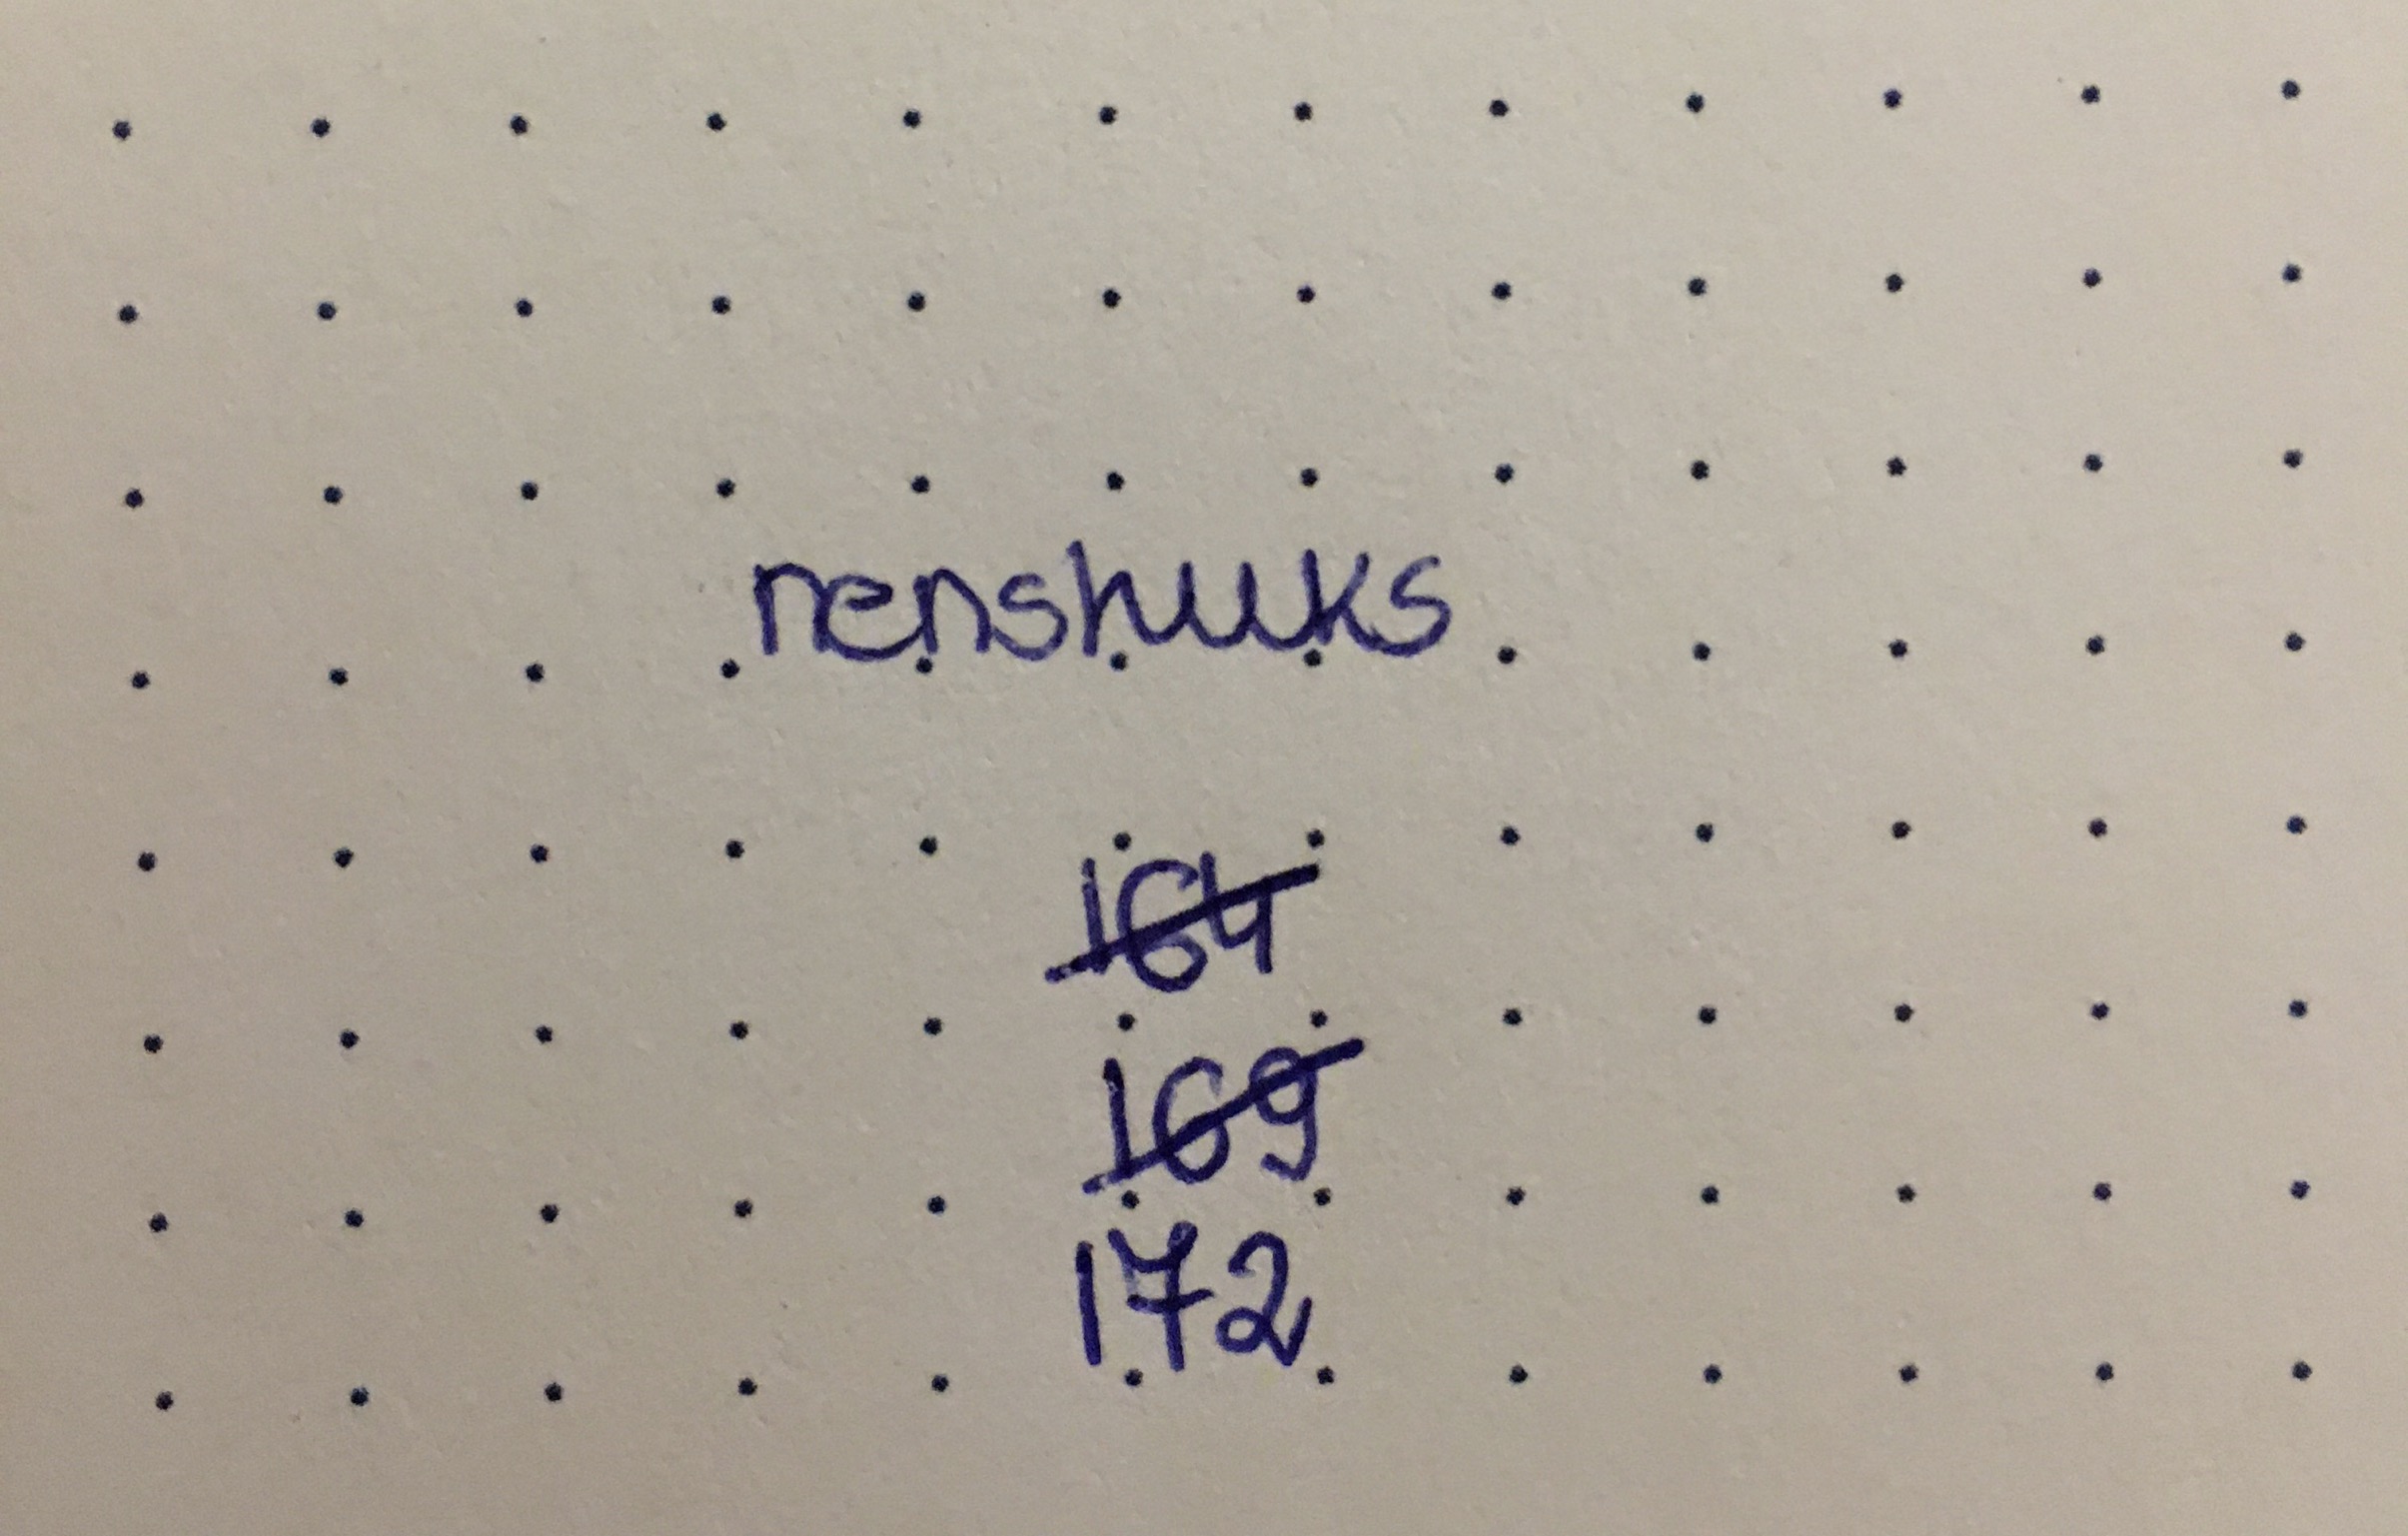 renshuks
164
169
172